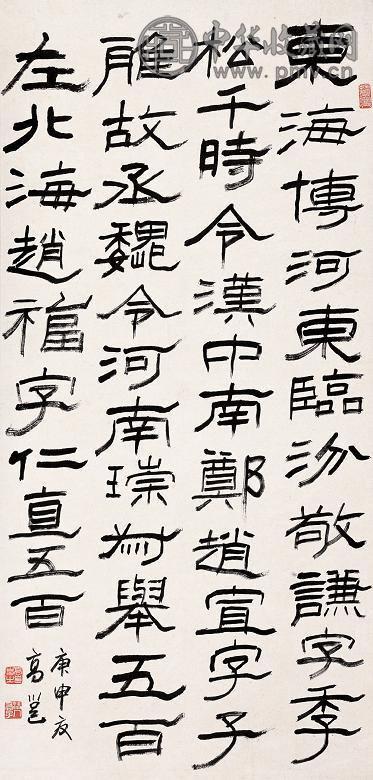 東海博河東臨汾敬謙字季
松千時令漢中南鄭趙宣字子
雅故丞魏令河南琮叔舉五百
左北海趙福字仁直五百
庚申
高邕
中华收藏网